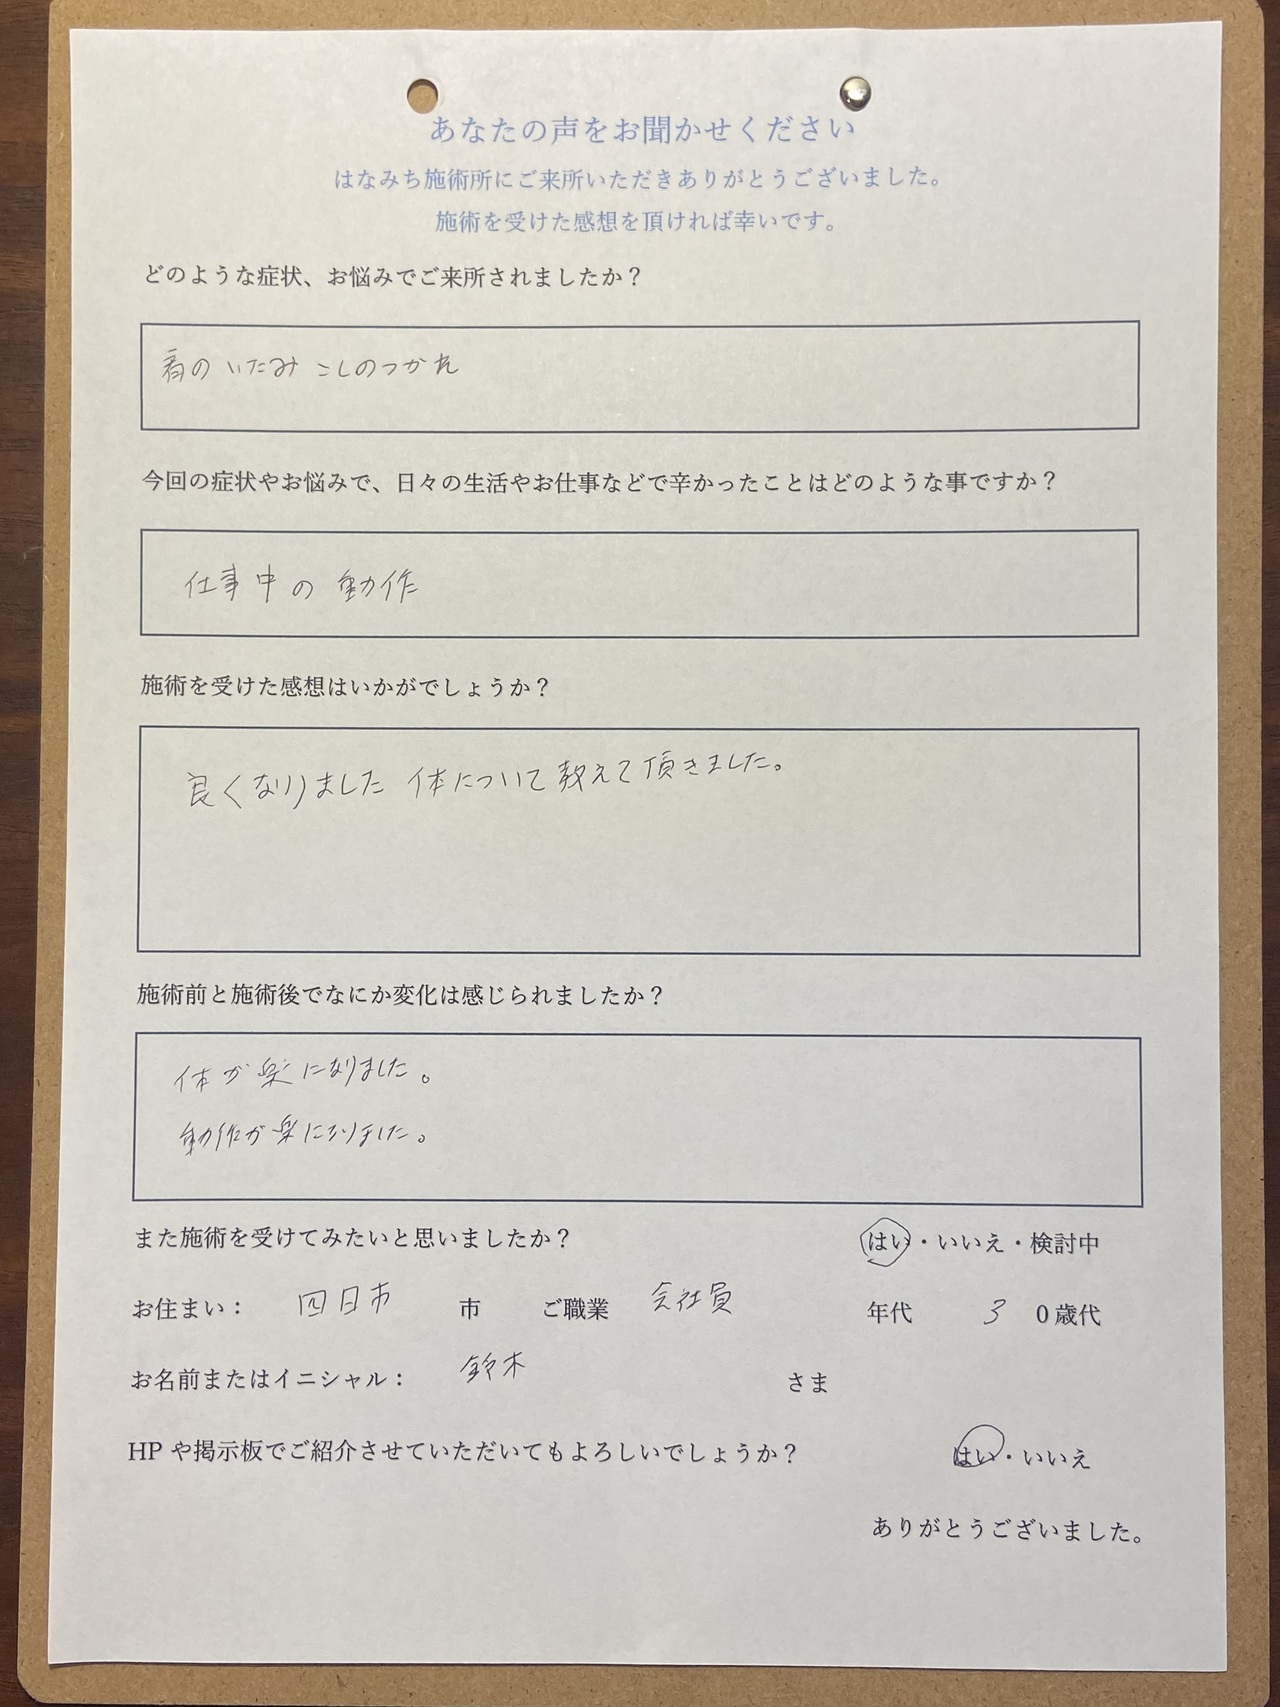 あなたの声をお聞かせください
はなみち施術所にご来所いただきありがとうございました。
施術を受けた感想を頂ければ幸いです。
どのような症状、お悩みでご来所されましたか？
肩のいたみ こしのつかれ
今回の症状やお悩みで、日々の生活やお仕事などで辛かったことはどのような事ですか？
仕事中の動作
施術を受けた感想はいかがでしょうか？
良くなりました 体について教えて頂きました。
施術前と施術後でなにか変化は感じられましたか？
体が楽になりました。
動作が楽になりました。
また施術を受けてみたいと思いましたか？ はい・いいえ・検討中
お住まい： 四日市 市 ご職業 会社員 年代 3 0歳代
お名前またはイニシャル： 鈴木 さま
HPや掲示板でご紹介させていただいてもよろしいでしょうか？ はい・いいえ
ありがとうございました。